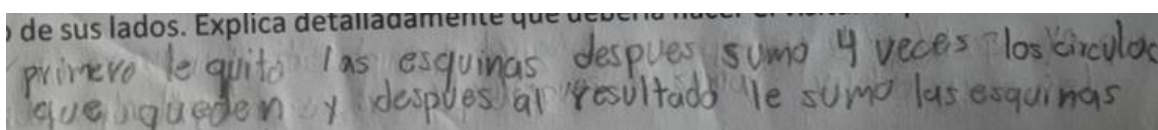 de sus lados. Explica detalladamente que debería hacer el
primero le quito las esquinas despues sumo 4 veces los circulos
que queden y despues al resultado le sumo las esquinas